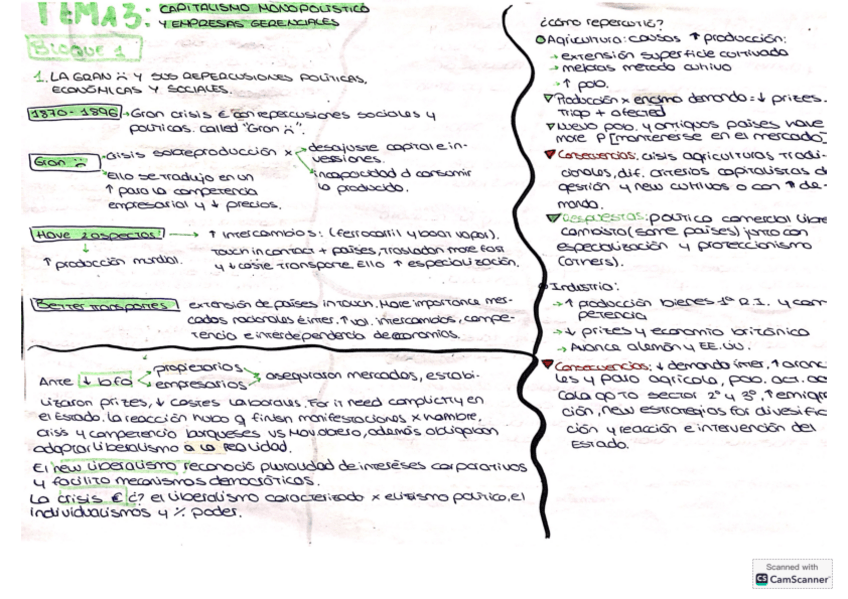 TEMA 3: CAPITALISMO MONOPOLÍSTICO
Y EMPRESAS GERENCIALES
Bloque 1
1. LA GRAN ☹ Y SUS REPERCUSIONES POLÍTICAS,
ECONÓMICAS Y SOCIALES.
1870-1896 → Gran crisis € con repercusiones sociales y
políticas. called "Gran ☹".
Gran ☹ → Crisis sobreproducción x → desajuste capital e in-
versiones.
→ incapacidad d consumir
lo producido.
→ Ello se tradujo en un
↑ para la competencia
empresarial y ↓ precios.
Have 2 aspectos: → ↑ intercambios: (ferrocarril y boat vapor).
↓ ↑ producción mundial.
Touch in contact + países, trasladan more fast
y ↓ coste transporte. Ello ↑ especialización.
Better transportes extensión de países in touch. More importance mer-
cados nacionales e inter. ↑ vol. intercambios, compe-
tencia e interdependencia de economías.
Ante ↓ bfo → propietarios
→ empresarios → aseguraron mercados, estabi-
lizaron prizes, ↓ costes laborales. For it need complicity en
el Estado. La reacción hubo q finish manifestaciones x hambre,
crisis y competencia burgueses vs Mov obrero, además obligación
adaptar liberalismo a la realidad.
El new liberalismo reconoció pluralidad de intereses corporativos
y facilitó mecanismos democráticos.
La crisis € ¿? el liberalismo caracterizado x elitismo político, el
individualismos y % poder.
¿cómo repercutió?
Agricultura: causas ↑ producción:
→ extensión superficie cultivada
→ mejoras método cultivo
→ ↑ pob.
Producción x encima demanda = ↓ prizes.
Trigo + afected
Nuevo pob. y antiguos países have
more P [mantenerse en el mercado]
Consecuencias: crisis agriculturas tradi-
cionales, dif. criterios capitalistas d
gestión y new cultivos o con ↑ de-
manda.
Respuestas: política comercial libre
cambista (some países) junto con
especialización y proteccionismo
(others).
Industria:
→ ↑ producción bienes 1ª R.I. y com
petencia
→ ↓ prizes y economía británica
→ Avance alemán y EE.UU.
Consecuencias: ↓ demanda inter, ↑ aranc
les y paro agrícola, pob. act. ag
cola go to sector 2º y 3º, ↑ emigr
ción, new estrategias for diversific
ción y reacción e intervención del
Estado.
Scanned with
CS CamScanner